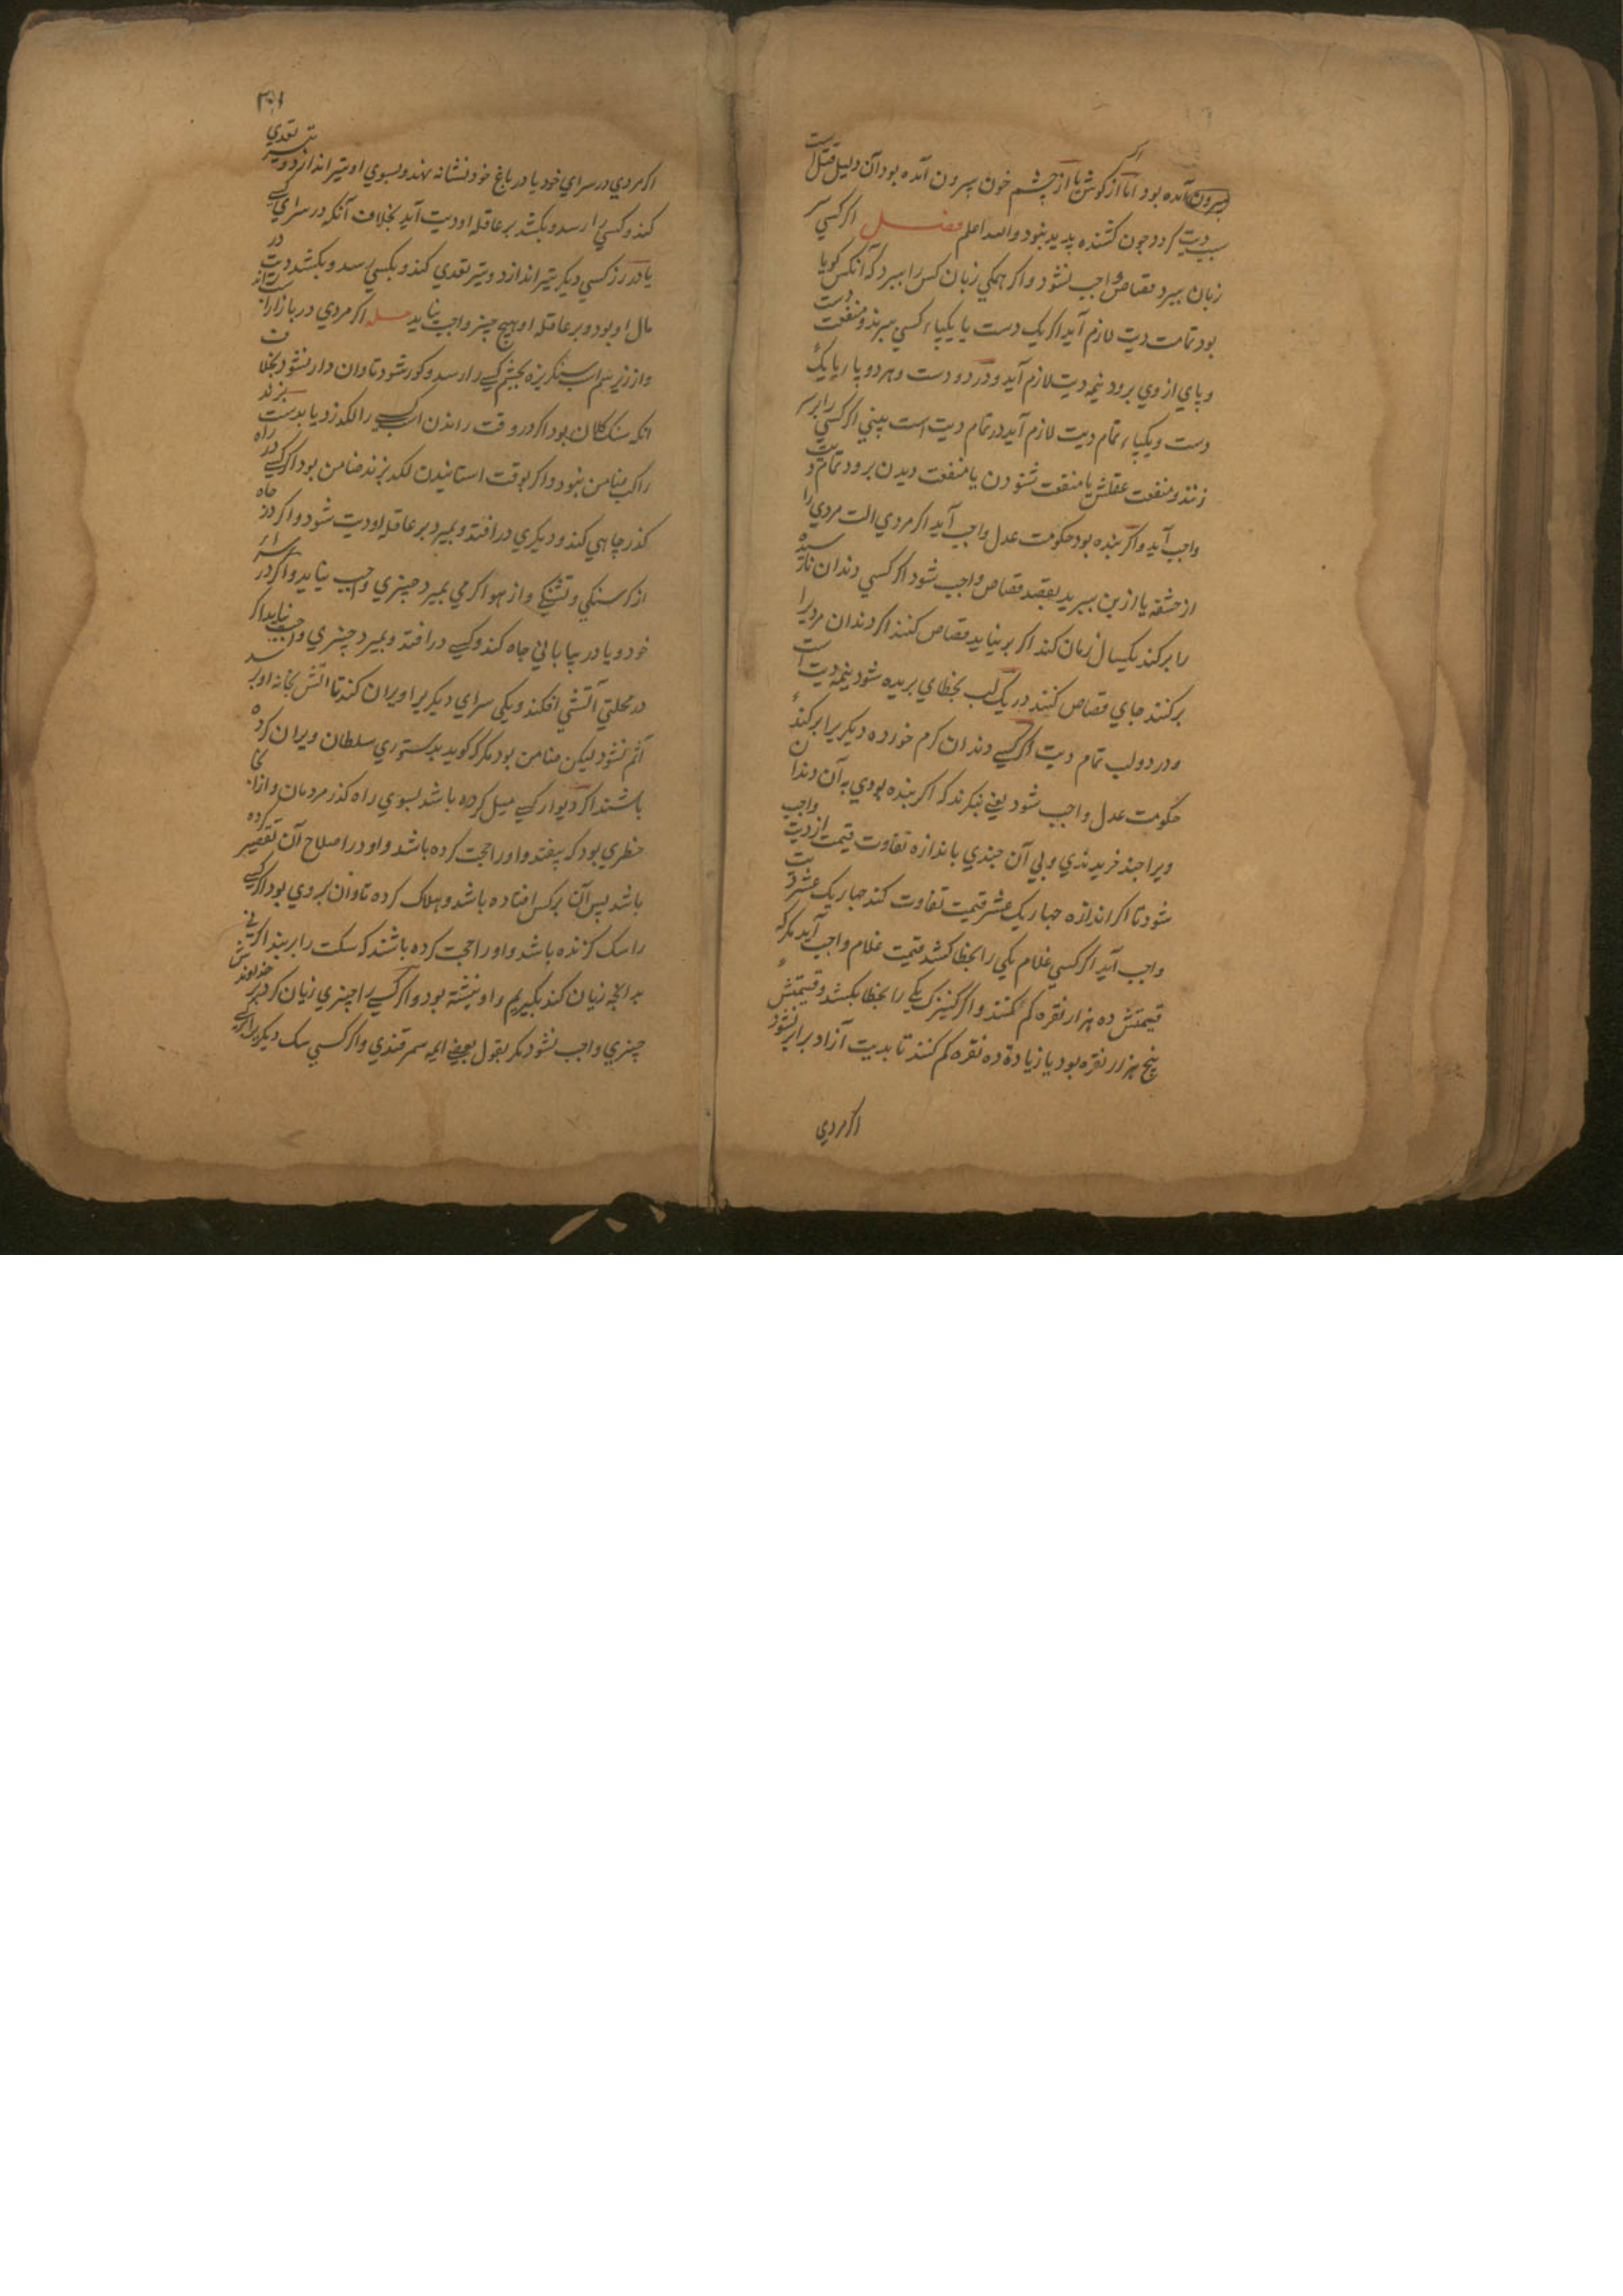 بیرون آمده بود اما اگر از کوش یا از چشم خون بیرون آمده بود آن دلیل قتل است
سبب دیت کردد چون کشنده پدید نبود والله اعلم فصل اکر کسی سر
زبان ببرد قصاص واجب نشود و اکر همکی زبان کس را ببرد که آنکس کویا
بود تمامت دیت لازم آید اکر یک دست یا یکپاء کسی ببرند و منفعت دست
و پای از وی برود نیمه دیت لازم آید و در دو دست و هر دو پا ریا یک
دست و یکپاء تمام دیت لازم آید در تمام دیت است بینی اکر کسی را بر سر
زنند و منفعت عقلش یا منفعت شنودن یا منفعت دیدن برود تمام دیت
واجب آید و اکر بنده بود حکومت عدل واجب آید اکر مردی الت مردی را
از حشفه یا از بن ببرید بقصد قصاص واجب شود اکر کسی دندان نارسیده
را برکند یکسال زمان کند اکر بر نیاید قصاص کنند اکر دندان مرد یرا
برکنند جای قصاص کنند در یک لب بخطای بریده شود نیمه دیت است
و در دو لب تمام دیت اکر کسی دندان کرم خورده دیکر یرا برکند
حکومت عدل واجب شود یعنی بنکرند که اکر بنده بودی به آن دندان
ویرا چند خریدندی و بی آن چندی باندازه تفاوت قیمت از دیت واجب
شود تا اکر اندازه چهار یک عشر قیمت تفاوت کند چهار یک عشر دیت
واجب آید اکر کسی غلام یکی را بخطا کشد قیمت غلام واجب آید مکر که
قیمتش ده هزار نقره کم کنند و اکر کنیزک یکی را بخطا بکشد و قیمتش
پنج هزار نقره بود یا زیادة ده نقره کم کنند تا بدیت آزاد برابر نشود
اکر مردی
اکر مردی در سرای خود یا در باغ خود نشانه نهد و بسوی او تیر اندازد و تیر تعدی
کند و کسی را رسد و بکشد بر عاقله او دیت آید بخلاف آنکه در سرای کسی
یا در رز کسی دیکر تیر اندازد و تیر تعدی کند و بکسی رسد و بکشد دیت در
مال او بود و بر عاقله او هیچ چیز واجب نیاید مسله اکر مردی در بازار اسب راند
و از زیر سم اسب سنکریزه بچشم کسی را رسد و کور شود تاوان دار نشود بخلاف
انکه سنک کلان بود اکر در وقت راندن اسب کسی را لکد زد یا بدست بزند
راکب ضامن نبود و اکر بوقت استانیدن لکد بزند ضامن بود اکر کسی در راه
کذر چاهی کند و دیکری در افتد و بمیرد بر عاقله او دیت شود و اکر در چاه
از کرسنکی و تشنکی و از هوا کرمی بمیرد چیزی واجب نیاید و اکر در سرای
خود و یا در بیابانی چاه کند و کسی در افتد و بمیرد چیزی واجب نیاید اکر
در محلتی آتشی افکند و یکی سرای دیکر یرا ویران کند تا اتش بخانه او نرسد
آثم نشود لیکن ضامن بود مکر که کوید بدستوری سلطان ویران کرده
باشند اکر دیوار کسی میل کرده باشد بسوی راه کذر مردمان و از انجا
خطری بود که بیفتد و او را حجت کرده باشد و او در اصلاح آن تقصیر کرده
باشد پس آن برکس افتاده باشد و هلاک کرده تاوان بر وی بود اکر کسی
را سک کزنده باشد و او را حجت کرده باشند که سکت را بر بند اکر نی
هر انچه زیان کند بکیریم و او نبشته بود و اکر کسی را چیزی زیان کرد بر خداوندش
چیزی واجب نشود مکر بقول بعضی ایمه سمرقندی و اکر کسی سک دیکر یرا